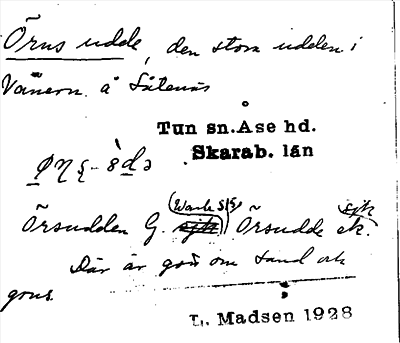 Örns udde, den stora udden i
Vänern å Såtenäs
Tun sn. Åse hd.
Skarab. län
Örsudden G. Örsudde ek.
sjk
Där är gott om sand och
grus.
L. Madsen 1928